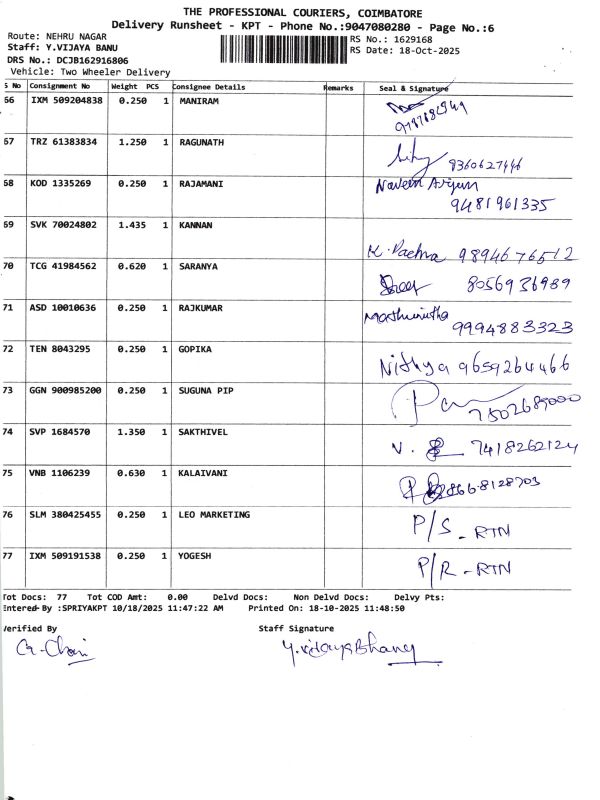 THE PROFESSIONAL COURIERS, COIMBATORE
Delivery Runsheet - KPT - Phone No.:9047080280 - Page No.:6
Route: NEHRU NAGAR
RS No.: 1629168
Staff: Y.VIJAYA BANU
RS Date: 18-Oct-2025
DRS No.: DCJB162916806
Vehicle: Two Wheeler Delivery
S No Consignment No Weight PCS Consignee Details Remarks Seal & Signature
66 IXM 509204838 0.250 1 MANIRAM
67 TRZ 61383834 1.250 1 RAGUNATH 9360627446
68 KOD 1335269 0.250 1 RAJAMANI Naveen Arjun
9481961335
69 SVK 70024802 1.435 1 KANNAN
9894676512
70 TCG 41984562 0.620 1 SARANYA 8056936989
71 ASD 10010636 0.250 1 RAJKUMAR
9994883323
72 TEN 8043295 0.250 1 GOPIKA Nithya 9659264466
73 GGN 900985200 0.250 1 SUGUNA PIP
7502689000
74 SVP 1684570 1.350 1 SAKTHIVEL V. 7418262124
75 VNB 1106239 0.630 1 KALAIVANI 8668128703
76 SLM 380425455 0.250 1 LEO MARKETING P/S - RTN
77 IXM 509191538 0.250 1 YOGESH P/R - RTN
Tot Docs: 77 Tot COD Amt: 0.00 Delvd Docs: Non Delvd Docs: Delvy Pts:
Entered By :SPRIYAKPT 10/18/2025 11:47:22 AM Printed On: 18-10-2025 11:48:50
Verified By Staff Signature
Y.vijayaBhanu